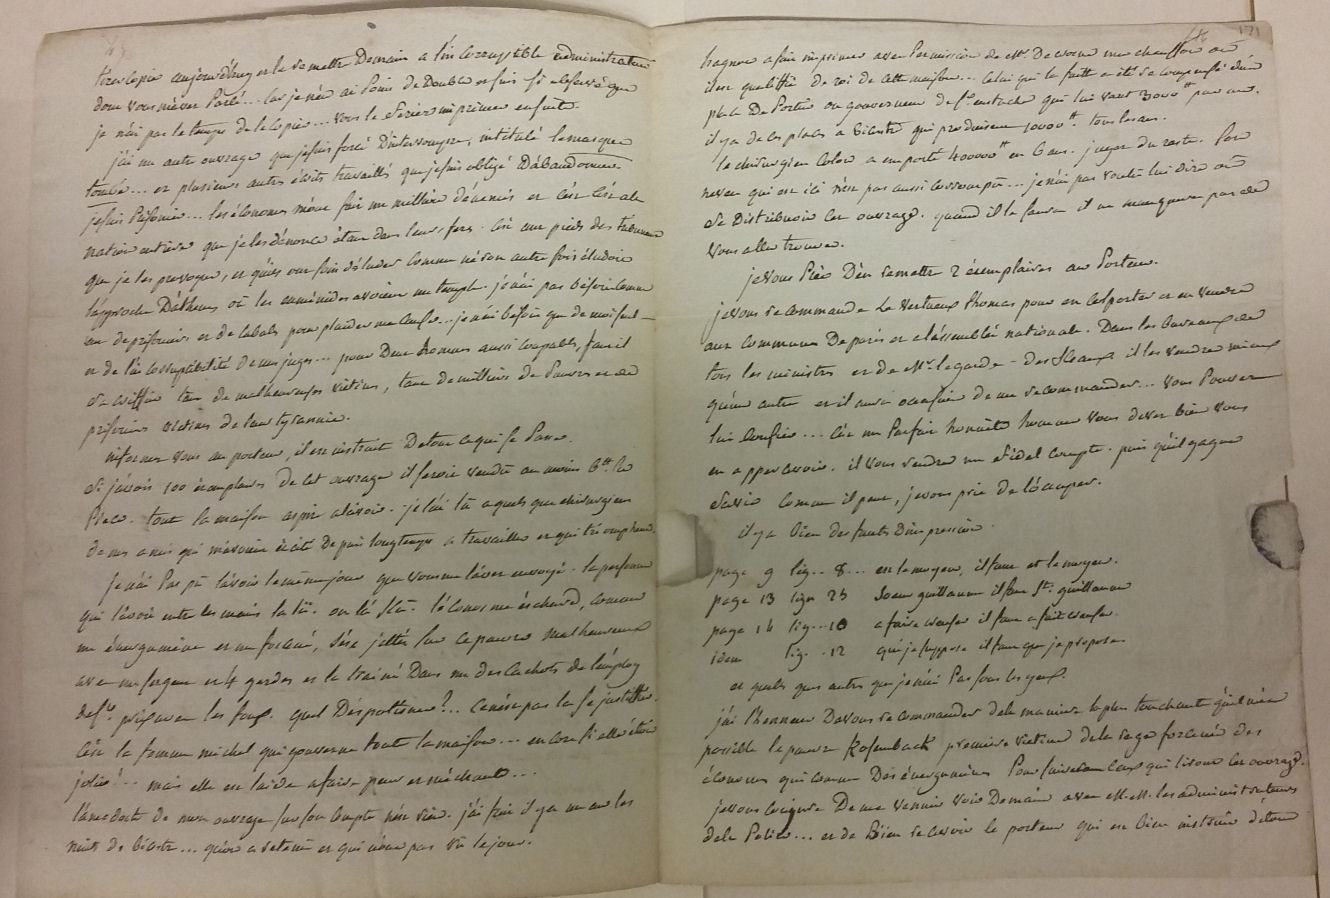 tirer copie aujourd'huy et la remettre Demain a l'incorruptible administrateur
dont vous m'avez Parlé... car je n'en ai Point de Double et suis si observé que
je n'ai pas le temps de le copier... vous le ferier imprimer ensuite.
j'ai un autre ouvrage que je suis forcé D'interrompre, intitulé le masque
tombé... et plusieurs autres écrits travaillés que je suis obligé D'abandonner.
je suis Prisonier... les économes m'ont fait un million d'énemis et c'est à la
nation entiere que je les dénonce étant dans leurs fers. c'est aux pieds des tribunaux
que je les provoque, et qu'ils ont soin d'éluder comme néron autre fois éludoit
l'approche D'athenes où les euménides avoient un temple. je n'ai pas besoin comme
eux de prisoniers et de cabale pour plaider ma cause... je n'ai besoin que de moi seul
et de l'incorruptibilité de mes juges... pour Deux hommes aussi coupables, faut il
sacrifier tant de malheureuses victimes, tant de milliers de Pauvres et de
prisoniers victimes de leur tyrannie.
informez vous au porteur, il est instruit De tout ce qui se Passe.
si j'avois 100 éxemplaires de cet ouvrage il seroit vendu au moins 6ᵗᵗ la
Piece. tout la maison aspire a l'avoir. je l'ai lû a quels que chirurgiens
de mes amis qui m'avoient éxcité Depuis longtemps a travailler et qui triomphent.
je n'ai Pas pu l'avoir le même jour que vous me l'avez envoyé. la personne
qui l'avoit entre les mains la lû. on l'a sçu. l'économe m'échard, comme
un énergumene et un forcené, s'est jetté sur ce pauvre malheureux
avec un sergent et 4 gardes et l'a trainé Dans un des cachots de l'employ
de sᵗ. prix avec les foux. quel Déspotisme?... ce n'est pas la se justiffier.
c'est la femme michel qui gouverne tout la maison... encore si elle étoit
jolie!... mais elle est laide a faire peur et méchante...
l'anecdote de mon ouvrage sur son compte n'est rien. j'ai fait il y a un an les
nuits de bicetre... qu'on a retenu et qui n'ont pas vû le jour.
hagnon a fait imprimer avec Permission de Mʳ. De crosne une chanson où
il est qualiffié de roi de cette maison... celui qui la faite a été récompensé d'une
place De Portier ou gouverneur de sᵗ. eustache qui lui vaut 3000ᵗᵗ par an.
il y a de ces places a Bicestre qui produisent 10000ᵗᵗ. tous les ans.
le chirurgien Colon a emporté 400000ᵗᵗ en 6 ans. jugez du reste. son
neveu qui est ici n'est pas aussi corrompu... je n'ai pas voulu lui dire où
se Distribuoit cet ouvrage. quand il le saura il ne manquera pas de
vous aller trouver.
je vous Prie D'en remettre 2 éxemplaires au Porteur.
je vous recommande Le vertueux thomas pour en colporter et en vendre
aux communes De paris et a l'assemblée nationale. Dans les bureaux de
tous les ministres et de Mʳ. le garde-des sceaux il les vendra mieux
qu'un autre et il aura occasion de me recommander... vous Pouvez
lui Confier... c'est un Parfait honnête homme vous devez bien vous
en appercevoir. il vous rendra un fidel compte. puis qu'il gagne
sa vie comme il peut, je vous prie de l'occuper.
il y a bien des fautes d'impression.
page 9 lig.. 8... en le moyen, il faut et le moyen.
page 13 ligne 23 soeur guillaume il faut Sᵗ. guillaume
page 14 lig... 10 a faire censure il faut a fait censure.
idem lig... 12 qui je suppose il faut que je propose.
et quels ques autres que je n'ai Pas sous les yeux.
j'ai l'honneur De vous recommander de la maniere la plus touchante qu'il m'est
possible le pauvre Rosemback premiere victime de la rage forcenée des
économes qui comme Des énergumenes Poursuivent tous ceux qui lisent cet ouvrage.
je vous conjure De me venir voir Demain avec M.M. les administrateurs
de la Police... et de Bien recevoir le porteur qui est bien instruit de tout